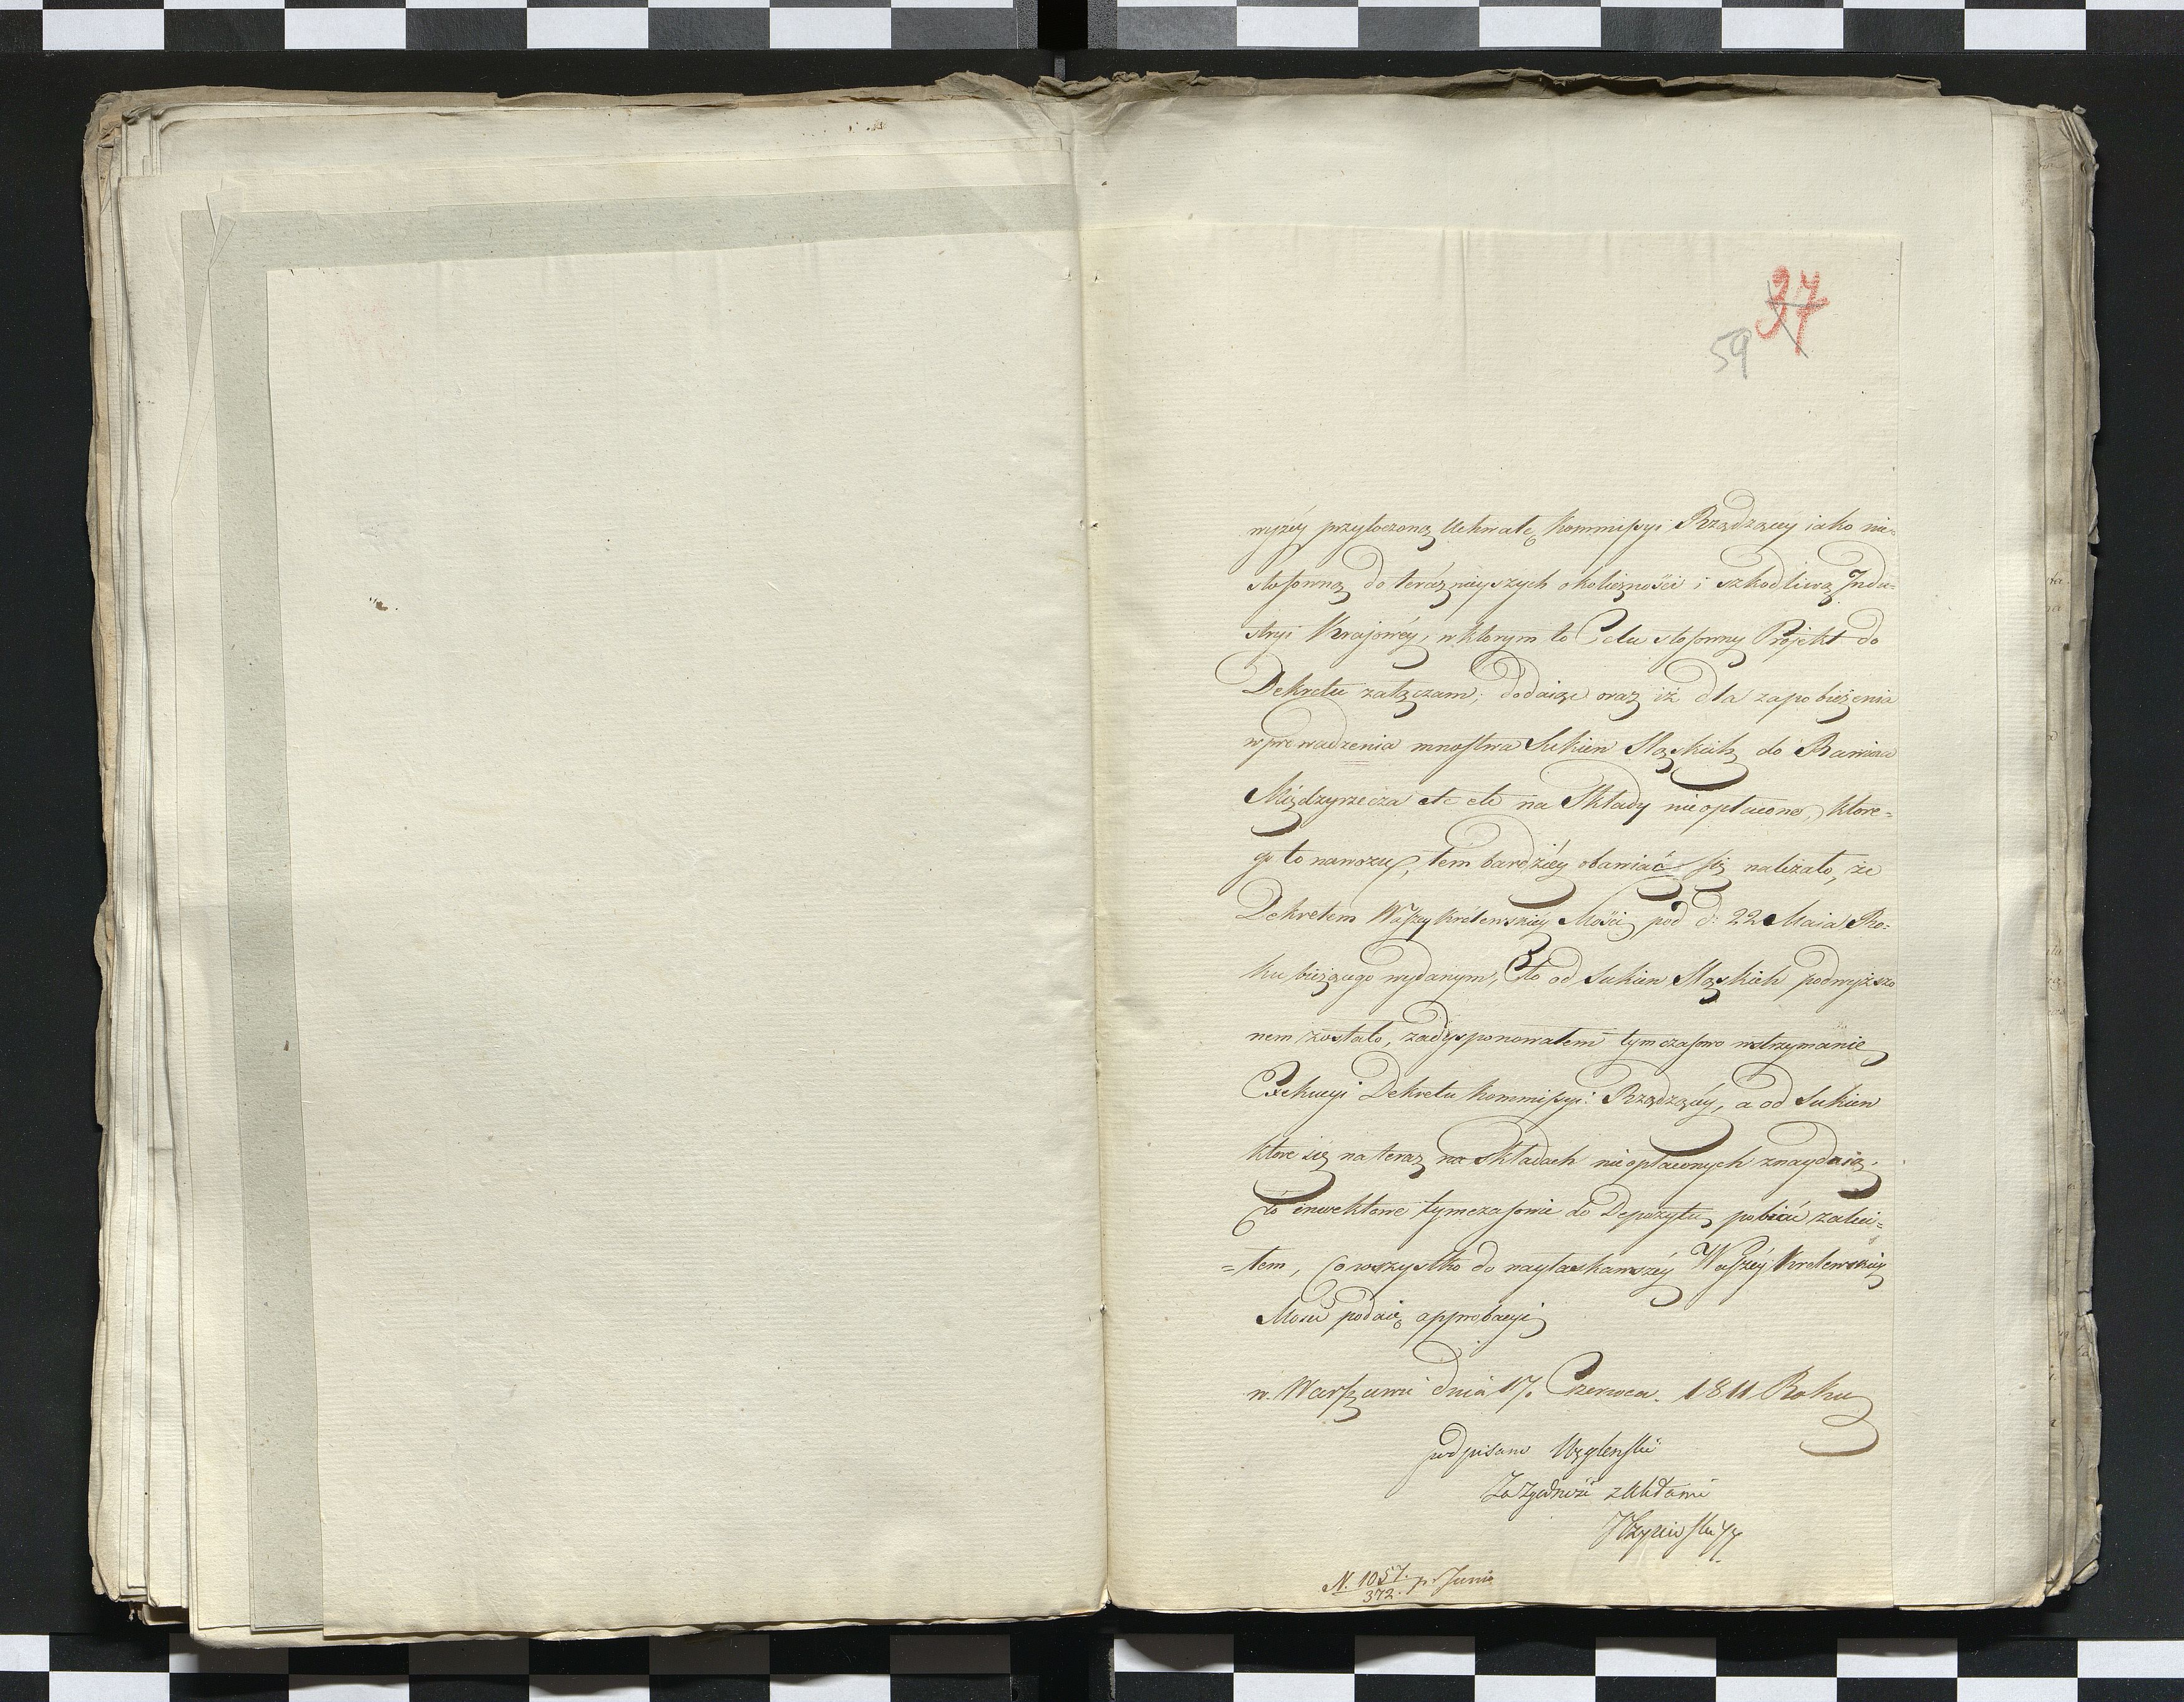 37
59
wyżéy przytoczoną Uchwałę Kommissyi Rządzącey iako nie-
stosowną do teráznieyszych okoliczności i szkodliwą Indu-
stryi Krajowéy, w ktorym to Celu stosowny Projekt do
Dekretu załączam; dodaiąc oraz iż dla zapobieżenia
wprowadzenia mnostwa Sukien Sląskich do Rawicza
Międzyrzecza etc etc na Składy nieopłacone, ktore-
go to nawozu, tém bardziéy obawiać się należało, że
Dekretem Waszey Królewskiéy Mości pod d: 22 Maia Ro-
ku bieżącego wydanym, Cło od Sukien Sląskich podwyższo
nem zostało, zadysponowałem tymczasowo wstrzymanie
Exekucyi Dekretu Kommissyi Rządzącéy, a od Sukien
ktore się na teraz na Składach nieopłaconych znayduią,
Cło inwektowe tymczasowie do Depozytu pobierać zaleci-
=łem, Co wszystko do nayłaskawszéy Waszéy Krolewskiéy
Mosci podaię approbacyi
w Warszawie dnia 17. Czerwca. 1811 Roku
podpisano Węgleński
Za Zgodność z Aktami
N. 1057. pr Junii
372.